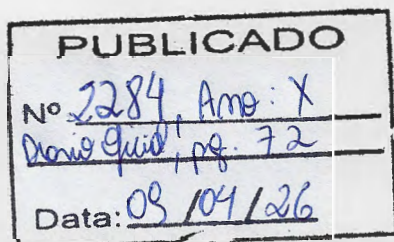 PUBLICADO
Nº 2284, Ano: X
Diário Oficial, pg. 72
Data: 09/04/26